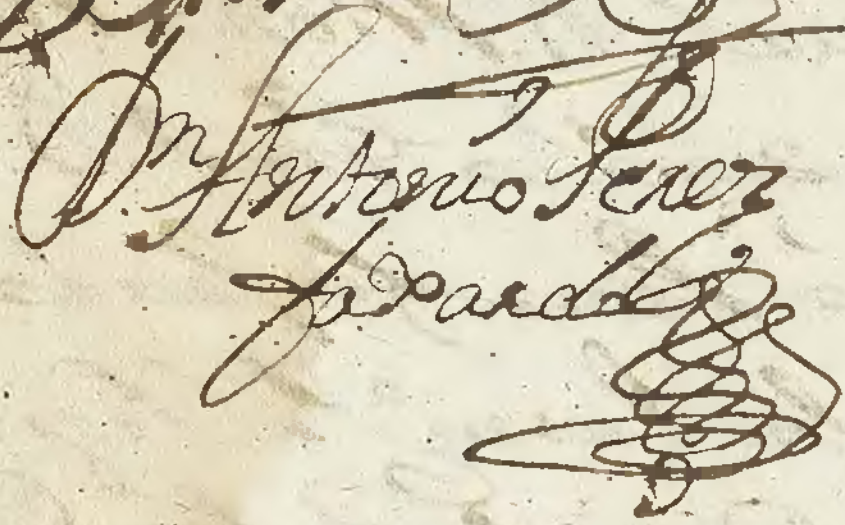 Dn Antonio Perez
faxardo